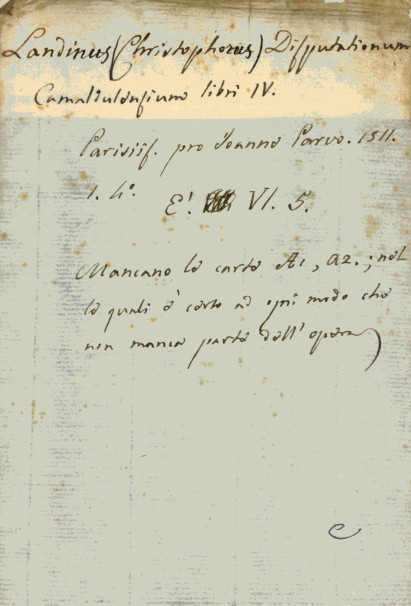 Landinus (Christophorus) Disputationum
Camaldulensium libri IV.
Parisiis. pro Joanne Parvo. 1511.
1. 4°.
E'. VI. 5.
Mancano le carte A1, a2.; nel
le quali è certo ad ogni modo che
non manca parte dell' opera)
C